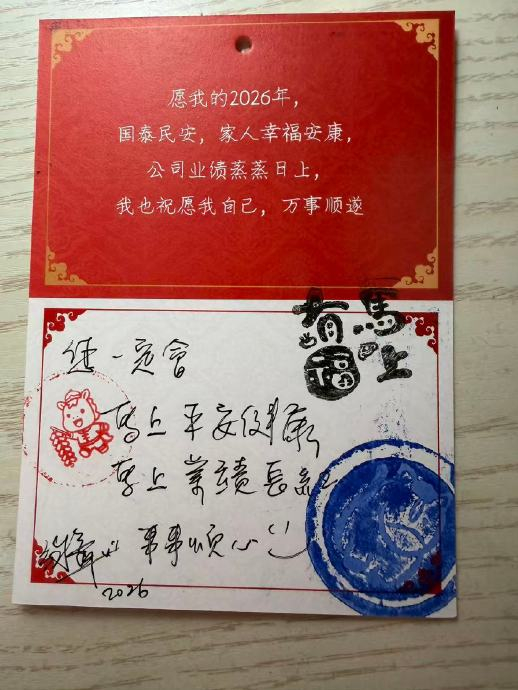 愿我的2026年，
国泰民安，家人幸福安康，
公司业绩蒸蒸日上，
我也祝愿我自己，万事顺遂
馬上
有福
一定會
馬上平安健康
馬上業績長紅
事事順心
2026